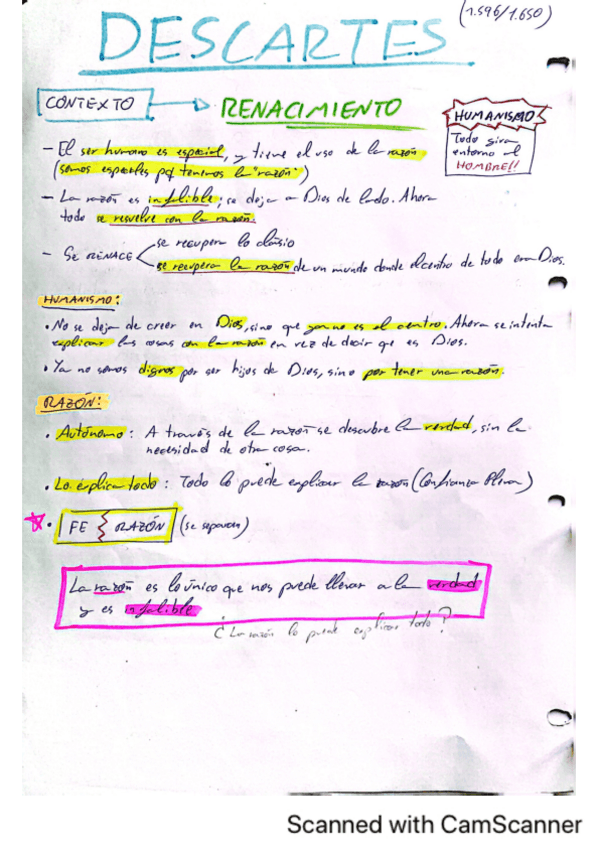 (1.596/1.650)
DESCARTES
CONTEXTO → RENACIMIENTO
HUMANISMO
Todo gira
entorno al
HOMBRE!!
- El ser humano es especial, y tiene el uso de la razón
(somos especiales pq tenemos la "razón")
- La razón es infalible; se deja a Dios de lado. Ahora
todo se resuelve con la razón.
- Se RENACE < se recupera lo clásico
se recupera la razón de un mundo donde el centro de todo era Dios.
HUMANISMO:
• No se deja de creer en Dios, sino que ya no es el centro. Ahora se intenta
explicar las cosas con la razón en vez de decir que es Dios.
• Ya no somos dignos por ser hijos de Dios, sino por tener una razón.
RAZÓN:
• Autónomo: A través de la razón se descubre la verdad, sin la
necesidad de otra cosa.
• Lo explica todo: Todo lo puede explicar la razón (Confianza Plena)
• FE RAZÓN (se separan)
La razón es lo único que nos puede llevar a la verdad
y es infalible
¿La razón lo puede explicar todo?
Scanned with CamScanner